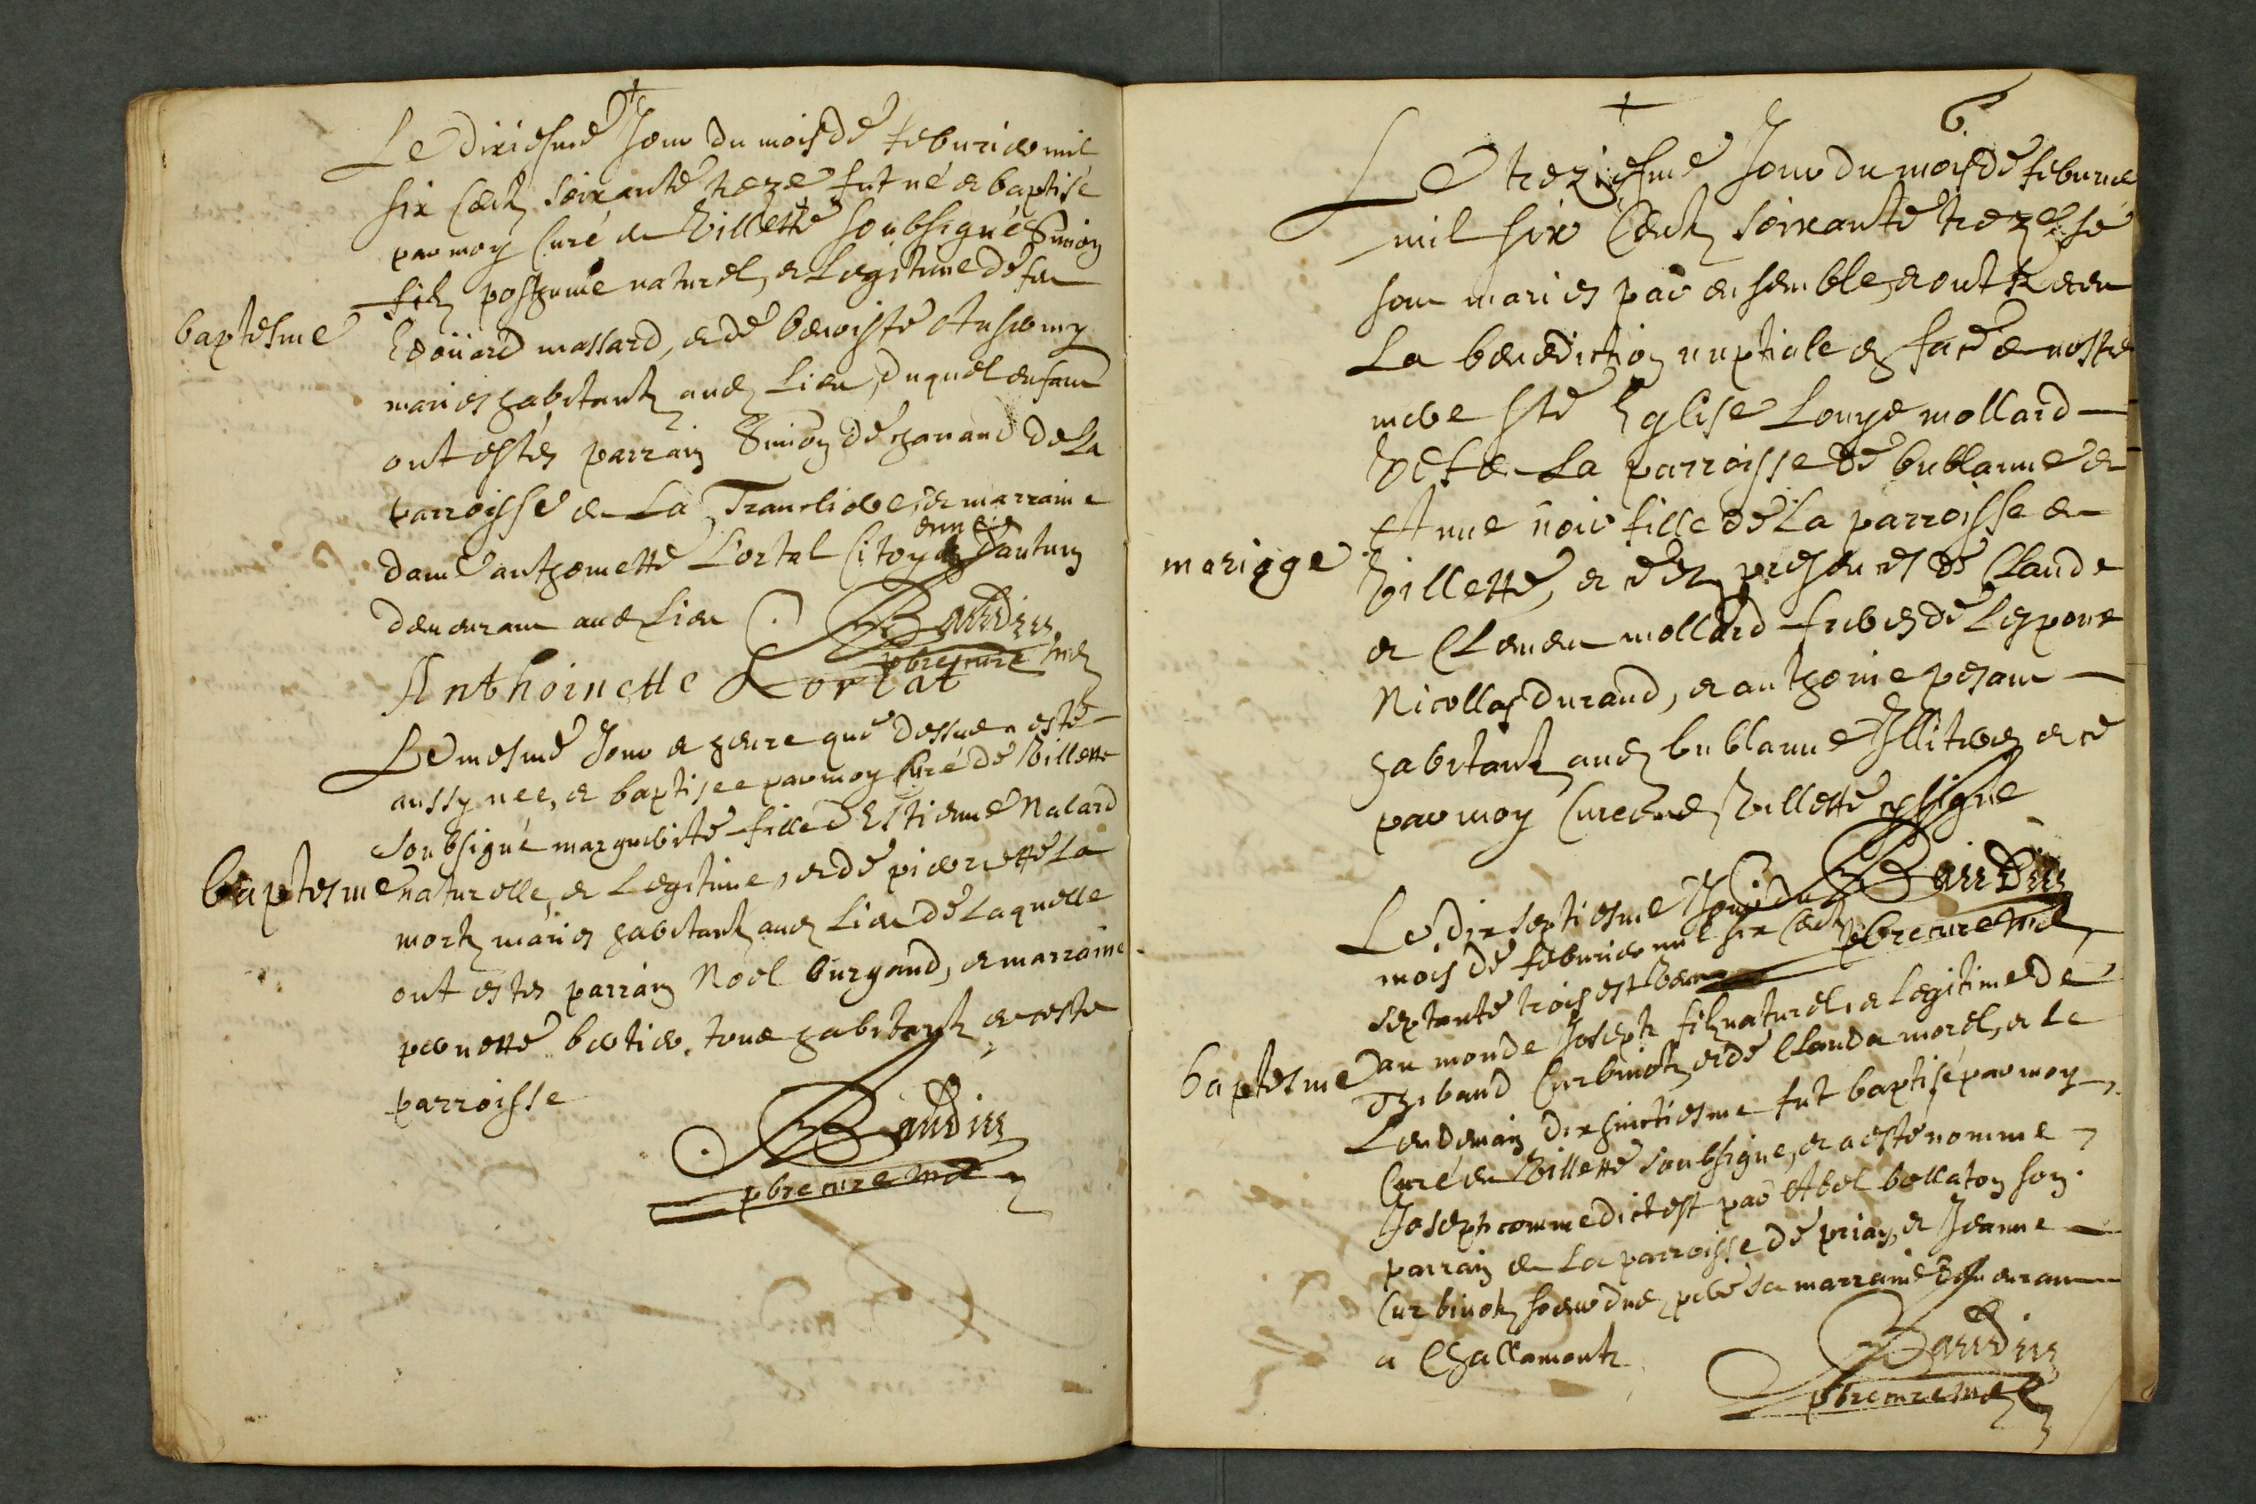 Le dixiesme Jour du mois de feburier mil
six centz soixante treze fut né et baptisé
par moy Curé de Villette soubsigné Simon
filz posthume naturel, et Legitime de feu
baptesme
Edoüard massard, et de benoiste
maries habitantz aud Lieu, duquel enfant
ont estes parrain Simon de chanaud de La
parroisse de La Trancliere, et marraine
dame anthoinette Lortal Citoyenne Dautun
demeurant aud Lieu
Baudin
pbre curé md
Anthoinette Lortat
Le mesme Jour et heure que dessus a esté
aussy née, et baptisee par moy Curé de Villette
soubsigné marguerite fille d Estienne Nalard
baptesme
naturelle, et Legitime, et de pierrette La
mortz maries habitantz aud Lieu de Laquelle
ont estes parrain Noel burgand, et marraine
pernette bertier. tous habitantz de ceste
parroisse
Baudin
pbre curé md
6
Le treziesme Jour du mois de feburier
mil six Centz soixante treze se
sont maries par ensemble, et ont receu
La benediction nuptiale en face de nostre
mere ste Eglise Louys mollard
de La parroisse de bublanne et
Anne noir fille de La parroisse de
mariage
Villette, et ce en presences de Claude
et Clement mollard freres de Lespoux
Nicollas durand, et anthoine pesant
habitantz aud bublanne Illiteres et ce
par moy Curé dud Villette soubsigné
Baudin
pbre curé md
Le dixseptiesme Jour du
mois de feburier mil six Centz
septante trois est venu
baptesme
au monde Joseph filz naturel, et Legitime de
Thibaud Curbinotz et de Clauda morel, et Le
Lendemain dixhuictiesme fut baptisé par moy
Curé de Villette soubsigné, et a esté nommé
Joseph comme dict est par Abel bollaton son
parrain de La parroisse de priay, et Jeanne
Curbinotz soeur dud pere sa marraine demeurant
a Challamontz
Baudin
pbre curé md